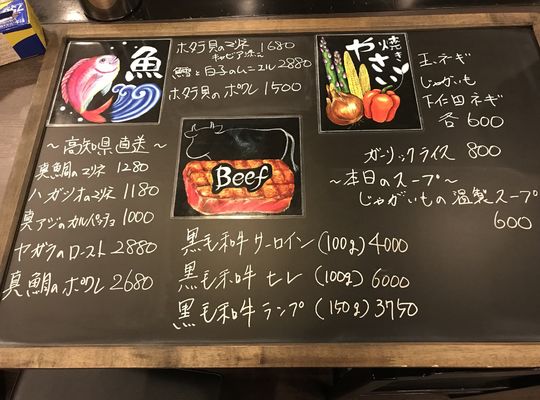 魚
～高知県直送～
真鯛のマリネ 1280
ハガツオのマリネ 1180
真アジのカルパッチョ 1000
ヤガラのロースト 2880
真鯛のポワレ 2680
ホタテ貝のマリネ 1680
キャビアソース
鱈と白子のムニエル 2880
ホタテ貝のポワレ 1500
Beef
黒毛和牛サーロイン (100g) 4000
黒毛和牛ヒレ (100g) 6000
黒毛和牛ランプ (150g) 3750
焼き
やさい
玉ネギ
じゃがいも
下仁田ネギ
各600
ガーリックライス 800
～本日のスープ～
じゃがいもの温製スープ
600